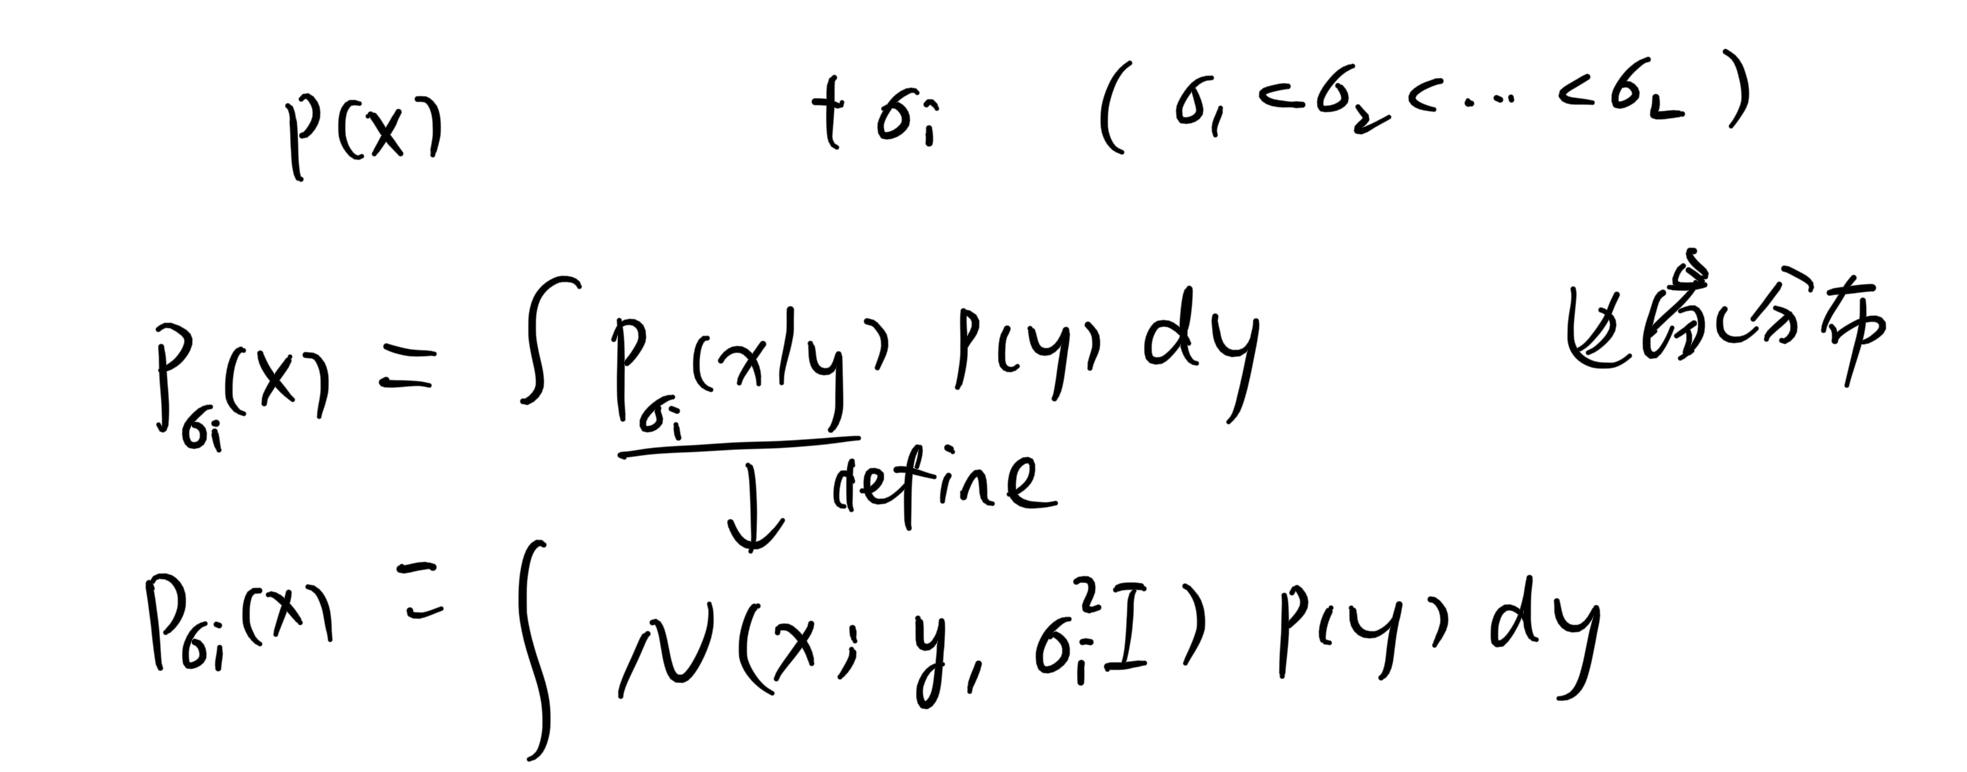 P(x) + σᵢ ( σ₁ < σ₂ < ... < σ_L )
P_σᵢ(x) = ∫ P_σᵢ(x|y) P(y) dy 边缘分布
↓ define
P_σᵢ(x) = ∫ N(x; y, σᵢ²I) P(y) dy